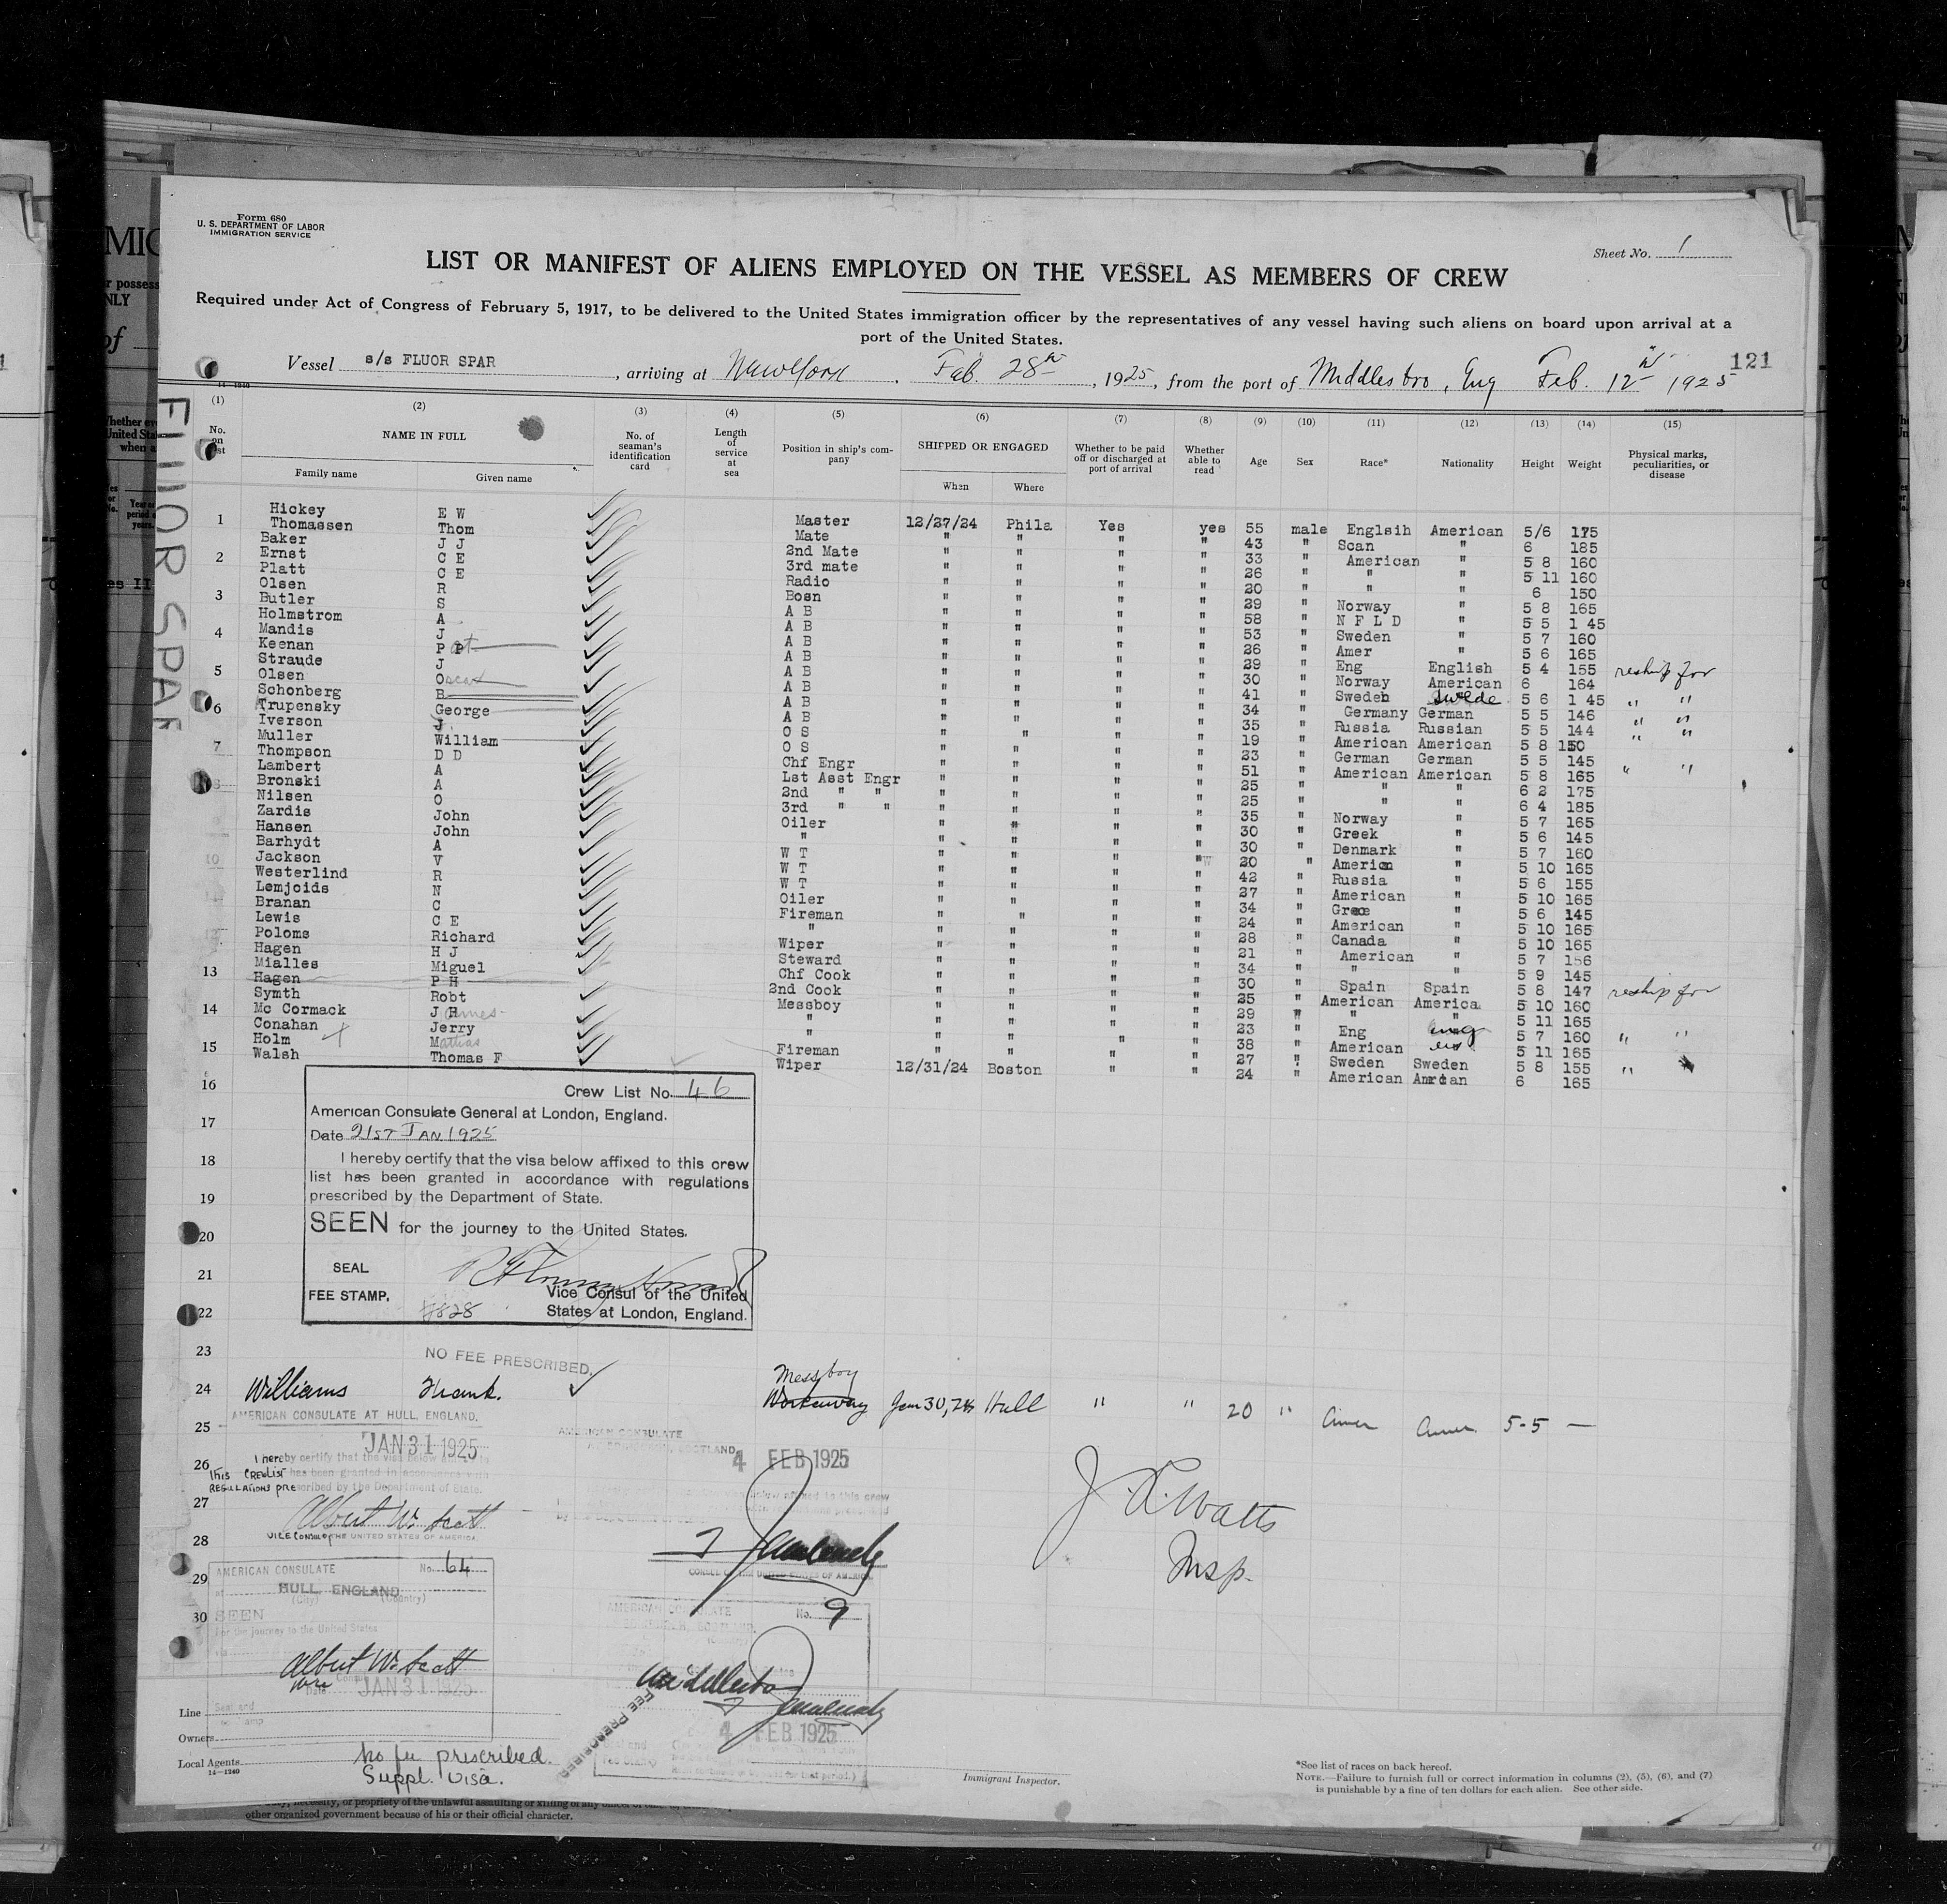 Form 680
U. S. DEPARTMENT OF LABOR
IMMIGRATION SERVICE
Sheet No. 1
LIST OR MANIFEST OF ALIENS EMPLOYED ON THE VESSEL AS MEMBERS OF CREW
Required under Act of Congress of February 5, 1917, to be delivered to the United States immigration officer by the representatives of any vessel having such aliens on board upon arrival at a
port of the United States.
121
Vessel s/s FLUOR SPAR, arriving at New York, Feb. 28th, 1925, from the port of Middlesbro, Eng Feb. 12th 1925
FLUOR SPAR
(1) (2) (3) (4) (5) (6) (7) (8) (9) (10) (11) (12) (13) (14) (15)
No. on list
NAME IN FULL
Family name
Given name
No. of seaman's identification card
Length of service at sea
Position in ship's company
SHIPPED OR ENGAGED
When
Where
Whether to be paid off or discharged at port of arrival
Whether able to read
Age
Sex
Race*
Nationality
Height
Weight
Physical marks, peculiarities, or disease
Hickey E W Master 12/27/24 Phila Yes yes 55 male Englsih American 5/6 175
Thomassen Thom Mate " " " " 43 " Scan " 6 185
Baker J J 2nd Mate " " " " 33 " American " 5 8 160
Ernst C E 3rd mate " " " " 26 " " " 5 11 160
Platt C E Radio " " " " 20 " " " 6 150
Olsen R Bosn " " " " 29 " Norway " 5 8 165
Butler S A B " " " " 58 " N F L D " 5 5 1 45
Holmstrom A A B " " " " 53 " Sweden " 5 7 160
Mandis J A B " " " " 26 " Amer " 5 6 165
Keenan P Pat A B " " " " 29 " Eng English 5 4 155 reship for
Straude J A B " " " " 30 " Norway American 6 164
Olsen Oscar A B " " " " 41 " Sweden Swede 5 6 1 45 " "
Schonberg B A B " " " " 34 " Germany German 5 5 146 " "
Trupensky George A B " " " " 35 " Russia Russian 5 5 144 " "
Iverson J O S " " " " 19 " American American 5 8 150
Muller William O S " " " " 23 " German German 5 5 145 " "
Thompson D D Chf Engr " " " " 51 " American American 5 8 165
Lambert A Lst Asst Engr " " " " 25 " " " 6 2 175
Bronski A 2nd " " " " " " 25 " " " 6 4 185
Nilsen O 3rd " " " " " " 35 " Norway " 5 7 165
Zardis John Oiler " " " " 30 " Greek " 5 6 145
Hansen John " " " " " 30 " Denmark " 5 7 160
Barhydt A W T " " " " 20 " American " 5 10 165
Jackson V W T " " " " 42 " Russia " 5 6 155
Westerlind R W T " " " " 27 " American " 5 10 165
Lemjoids N Oiler " " " " 34 " Greece " 5 6 145
Branan C Fireman " " " " 24 " American " 5 10 165
Lewis C E " " " " " 28 " Canada " 5 10 165
Poloms Richard Wiper " " " " 21 " American " 5 7 156
Hagen H J Steward " " " " 34 " " " 5 9 145
Mialles Miguel Chf Cook " " " " 30 " Spain Spain 5 8 147 reship for
Hagen P H 2nd Cook " " " " 25 " American America 5 10 160
Symth Robt Messboy " " " " 29 " " " 5 11 165
Mc Cormack J H ames " " " " " 23 " Eng eng 5 7 160 " "
Conahan Jerry " " " " " 38 " American 5 11 165
Holm Mattias Fireman " " " " 27 " Sweden Sweden 5 8 155 " "
Walsh Thomas F Wiper 12/31/24 Boston " " 24 " American Amrcan 6 165
1
2
3
4
5
6
7
8
10
13
14
15
16
17
18
19
20
21
22
23
24
25
26
27
28
29
30
Crew List No. 46
American Consulate General at London, England.
Date 21ST JAN. 1925
I hereby certify that the visa below affixed to this crew
list has been granted in accordance with regulations
prescribed by the Department of State.
SEEN for the journey to the United States.
SEAL
FEE STAMP.
Vice Consul of the United
States at London, England.
NO FEE PRESCRIBED.
Williams Frank. Messboy Workaway Jan 30, 25 Hull " " 20 " Amer Amer 5-5 —
AMERICAN CONSULATE AT HULL, ENGLAND.
JAN 31 1925
I hereby certify that the visa below affixed to
THIS CREW LIST has been granted in accordance with
REGULATIONS prescribed by the Department of State.
Albert W. Scott
VICE CONSUL OF THE UNITED STATES OF AMERICA
AMERICAN CONSULATE
4 FEB 1925
CONSUL OF THE UNITED STATES OF AMERICA
J. R. Watts
Insp.
AMERICAN CONSULATE No. 64
at HULL, ENGLAND.
(City) (Country)
SEEN
For the journey to the United States
Albert W. Scott
Vice Consul
Date JAN 31 1925
Seal and
AMERICAN CONSULATE No. 9
Middlesbro
4 FEB 1925
FEE PRESCRIBED
Line
Owners
Local Agents
14—1240
No fee prescribed.
Suppl. visa.
Immigrant Inspector.
*See list of races on back hereof.
NOTE.—Failure to furnish full or correct information in columns (2), (5), (6), and (7)
is punishable by a fine of ten dollars for each alien. See other side.
other organized government because of his or their official character.